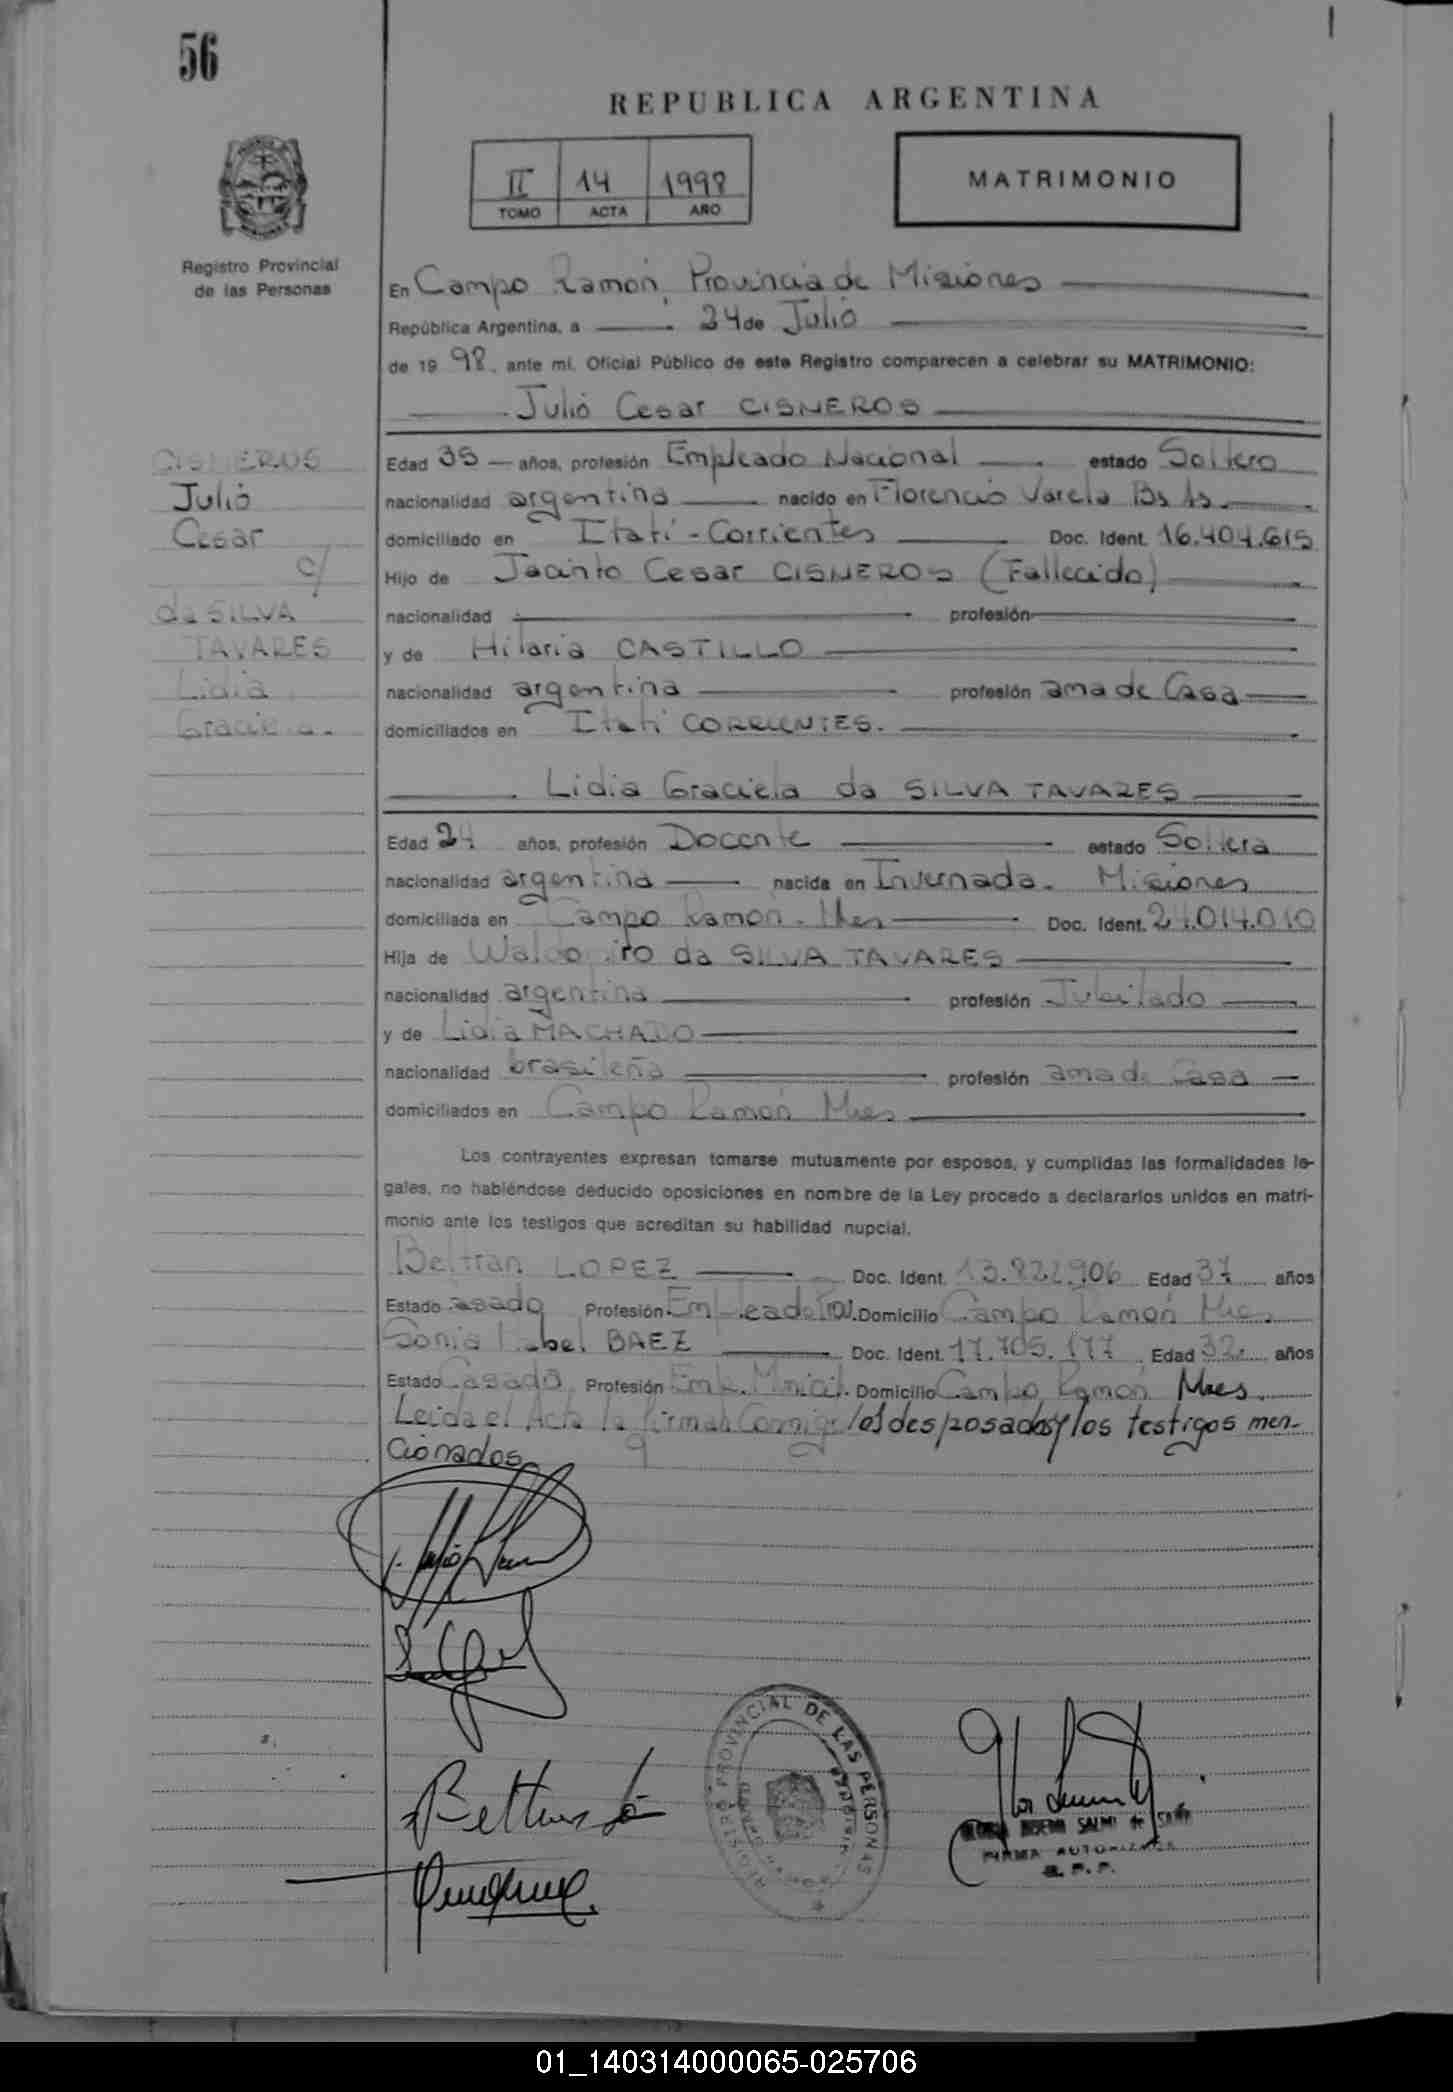 56
REPUBLICA ARGENTINA
II 14 1998
TOMO ACTA AÑO
MATRIMONIO
Registro Provincial
de las Personas
En Campo Ramón, Provincia de Misiones
República Argentina, a 24 de Julio
de 19 98, ante mí, Oficial Público de este Registro comparecen a celebrar su MATRIMONIO:
Julio Cesar CISNEROS
CISNEROS
Julio
Cesar
c/
da SILVA
TAVARES
Lidia
Graciela.
Edad 35 años, profesión Empleado Nacional estado Soltero
nacionalidad argentina nacido en Florencio Varela Bs As.
domiciliado en Itatí - Corrientes Doc. Ident. 16.404.615
Hijo de Jacinto Cesar CISNEROS (Fallecido)
nacionalidad profesión
y de Hilaria CASTILLO
nacionalidad argentina profesión ama de Casa
domiciliados en Itatí CORRIENTES.
Lidia Graciela da SILVA TAVARES
Edad 24 años, profesión Docente estado Soltera
nacionalidad argentina nacida en Invernada. Misiones
domiciliada en Campo Ramón - Mnes Doc. Ident. 24.014.010
Hija de da SILVA TAVARES
nacionalidad argentina profesión Jubilado
y de Lidia MACHADO
nacionalidad brasileña profesión ama de Casa
domiciliados en Campo Ramón Mnes
Los contrayentes expresan tomarse mutuamente por esposos, y cumplidas las formalidades le-
gales, no habiéndose deducido oposiciones en nombre de la Ley procedo a declararlos unidos en matri-
monio ante los testigos que acreditan su habilidad nupcial.
Beltran LOPEZ Doc. Ident. 13.822.906 Edad 37 años
Estado Casado Profesión Empleado Prov. Domicilio Campo Ramón Mnes
Sonia Mabel BAEZ Doc. Ident. 17.705.177 Edad 32 años
Estado Casada Profesión Emp. Municip. Domicilio Campo Ramón Mnes.
Leida el Acta la firman Conmigo los desposados y los testigos men-
cionados
REGISTRO PROVINCIAL DE LAS PERSONAS
SALMI de
FIRMA AUTORIZADA
R. P. P.
01_140314000065-025706